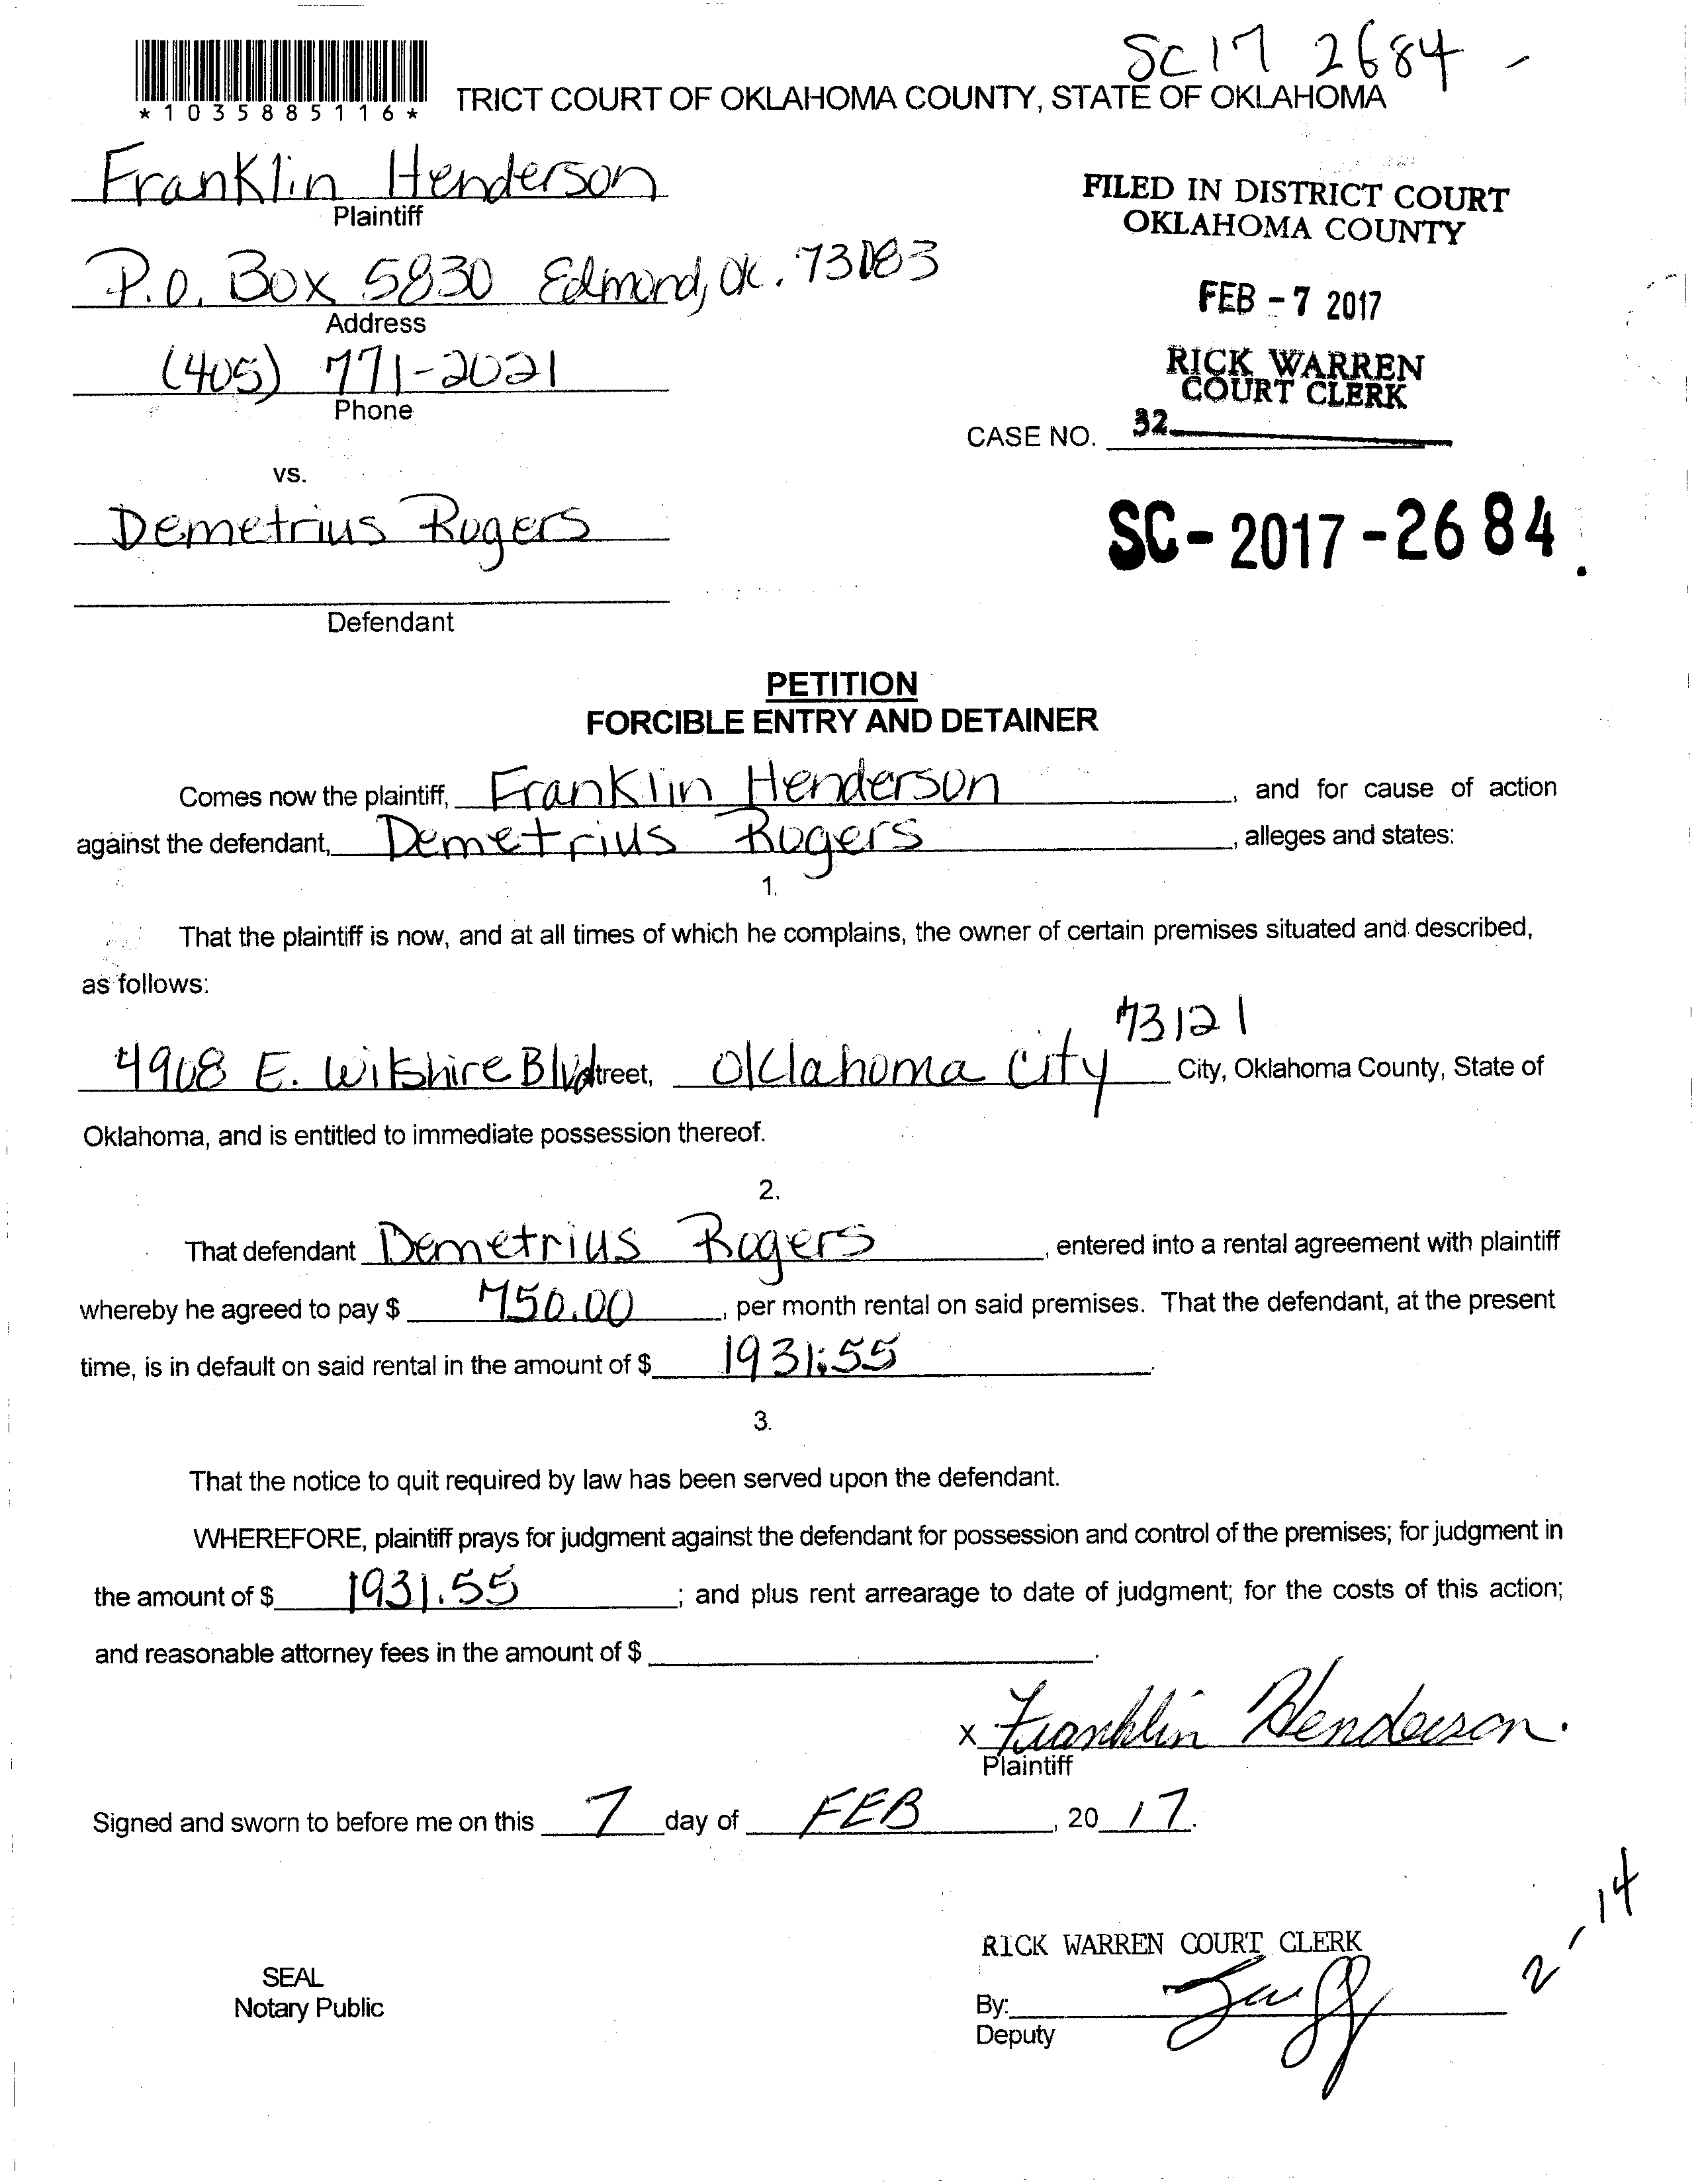 SC17 2684 -
*1035885116*
TRICT COURT OF OKLAHOMA COUNTY, STATE OF OKLAHOMA
Franklin Henderson
Plaintiff
FILED IN DISTRICT COURT
OKLAHOMA COUNTY
P.O. Box 5830 Edmond, OK. 73083
Address
FEB - 7 2017
(405) 771-2021
Phone
RICK WARREN
COURT CLERK
CASE NO. 32
vs.
Demetrius Rogers
SC-2017-2684.
Defendant
PETITION
FORCIBLE ENTRY AND DETAINER
Comes now the plaintiff, Franklin Henderson, and for cause of action
against the defendant, Demetrius Rogers, alleges and states:
1.
That the plaintiff is now, and at all times of which he complains, the owner of certain premises situated and described,
as follows:
73121
4908 E. Wilshire Blvd treet, Oklahoma City City, Oklahoma County, State of
Oklahoma, and is entitled to immediate possession thereof.
2.
That defendant Demetrius Rogers, entered into a rental agreement with plaintiff
whereby he agreed to pay $ 750.00, per month rental on said premises. That the defendant, at the present
time, is in default on said rental in the amount of $ 1931.55.
3.
That the notice to quit required by law has been served upon the defendant.
WHEREFORE, plaintiff prays for judgment against the defendant for possession and control of the premises; for judgment in
the amount of $ 1931.55; and plus rent arrearage to date of judgment; for the costs of this action;
and reasonable attorney fees in the amount of $.
x Franklin Henderson.
Plaintiff
Signed and sworn to before me on this 7 day of FEB, 2017.
2-14
RICK WARREN COURT CLERK
SEAL
Notary Public
By:
Deputy